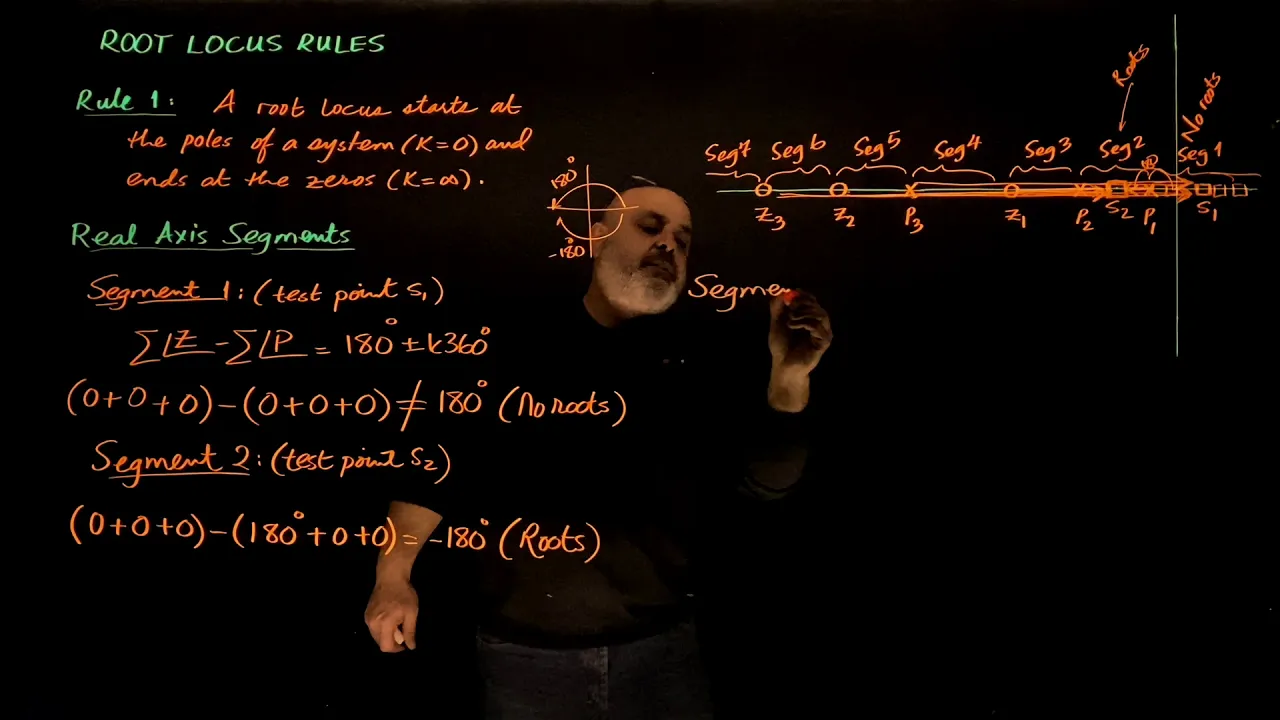 ROOT LOCUS RULES
Rule 1: A root locus starts at
the poles of a system (K=0) and
ends at the zeros (K=∞).
Real Axis Segments
Segment 1: (test point S₁)
∑∠Z - ∑∠P = 180° ± k360°
(0+0+0)-(0+0+0) ≠ 180° (No roots)
Segment 2: (test point S₂)
(0+0+0)-(180°+0+0) = -180° (Roots)
180°
-180°
Roots
No roots
Seg7 Seg6 Seg5 Seg4 Seg3 Seg2 Seg1
Z₃ Z₂ P₃ Z₁ P₂ S₂ P₁ S₁
Segmen